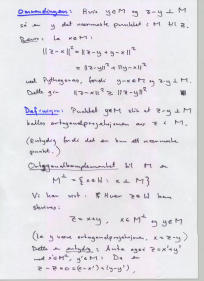 Omvendingen: Hvis y∈M og z-y ⊥ M
så er y det nærmeste punktet i M til z.
Bevis: La x∈M:
||z-x||² = ||z-y+y-x||²
= ||z-y||² + ||y-x||²
ved Pythagoras, fordi y-x∈M og z-y ⊥ M.
Dette gir ||z-x||² ≥ ||z-y||²
Definisjon: Punktet y∈M slik at z-y ⊥ M
kalles ortogonalprojeksjonen av z i M.
(Entydig fordi det er kun ett nærmeste
punkt.)
Ortogonalkomplementet til M er
M^⊥ = {x∈H : x ⊥ M}
Vi har vist: Hver z∈H kan
skrives:
z = x+y, x∈M^⊥ og y∈M
(La y være ortogonalprojeksjonen, x = z-y.)
Dette er entydig: Anta også z = x'+y'
med x'∈M^⊥, y'∈M: Da er
z-z = 0 = (x-x') + (y-y'),